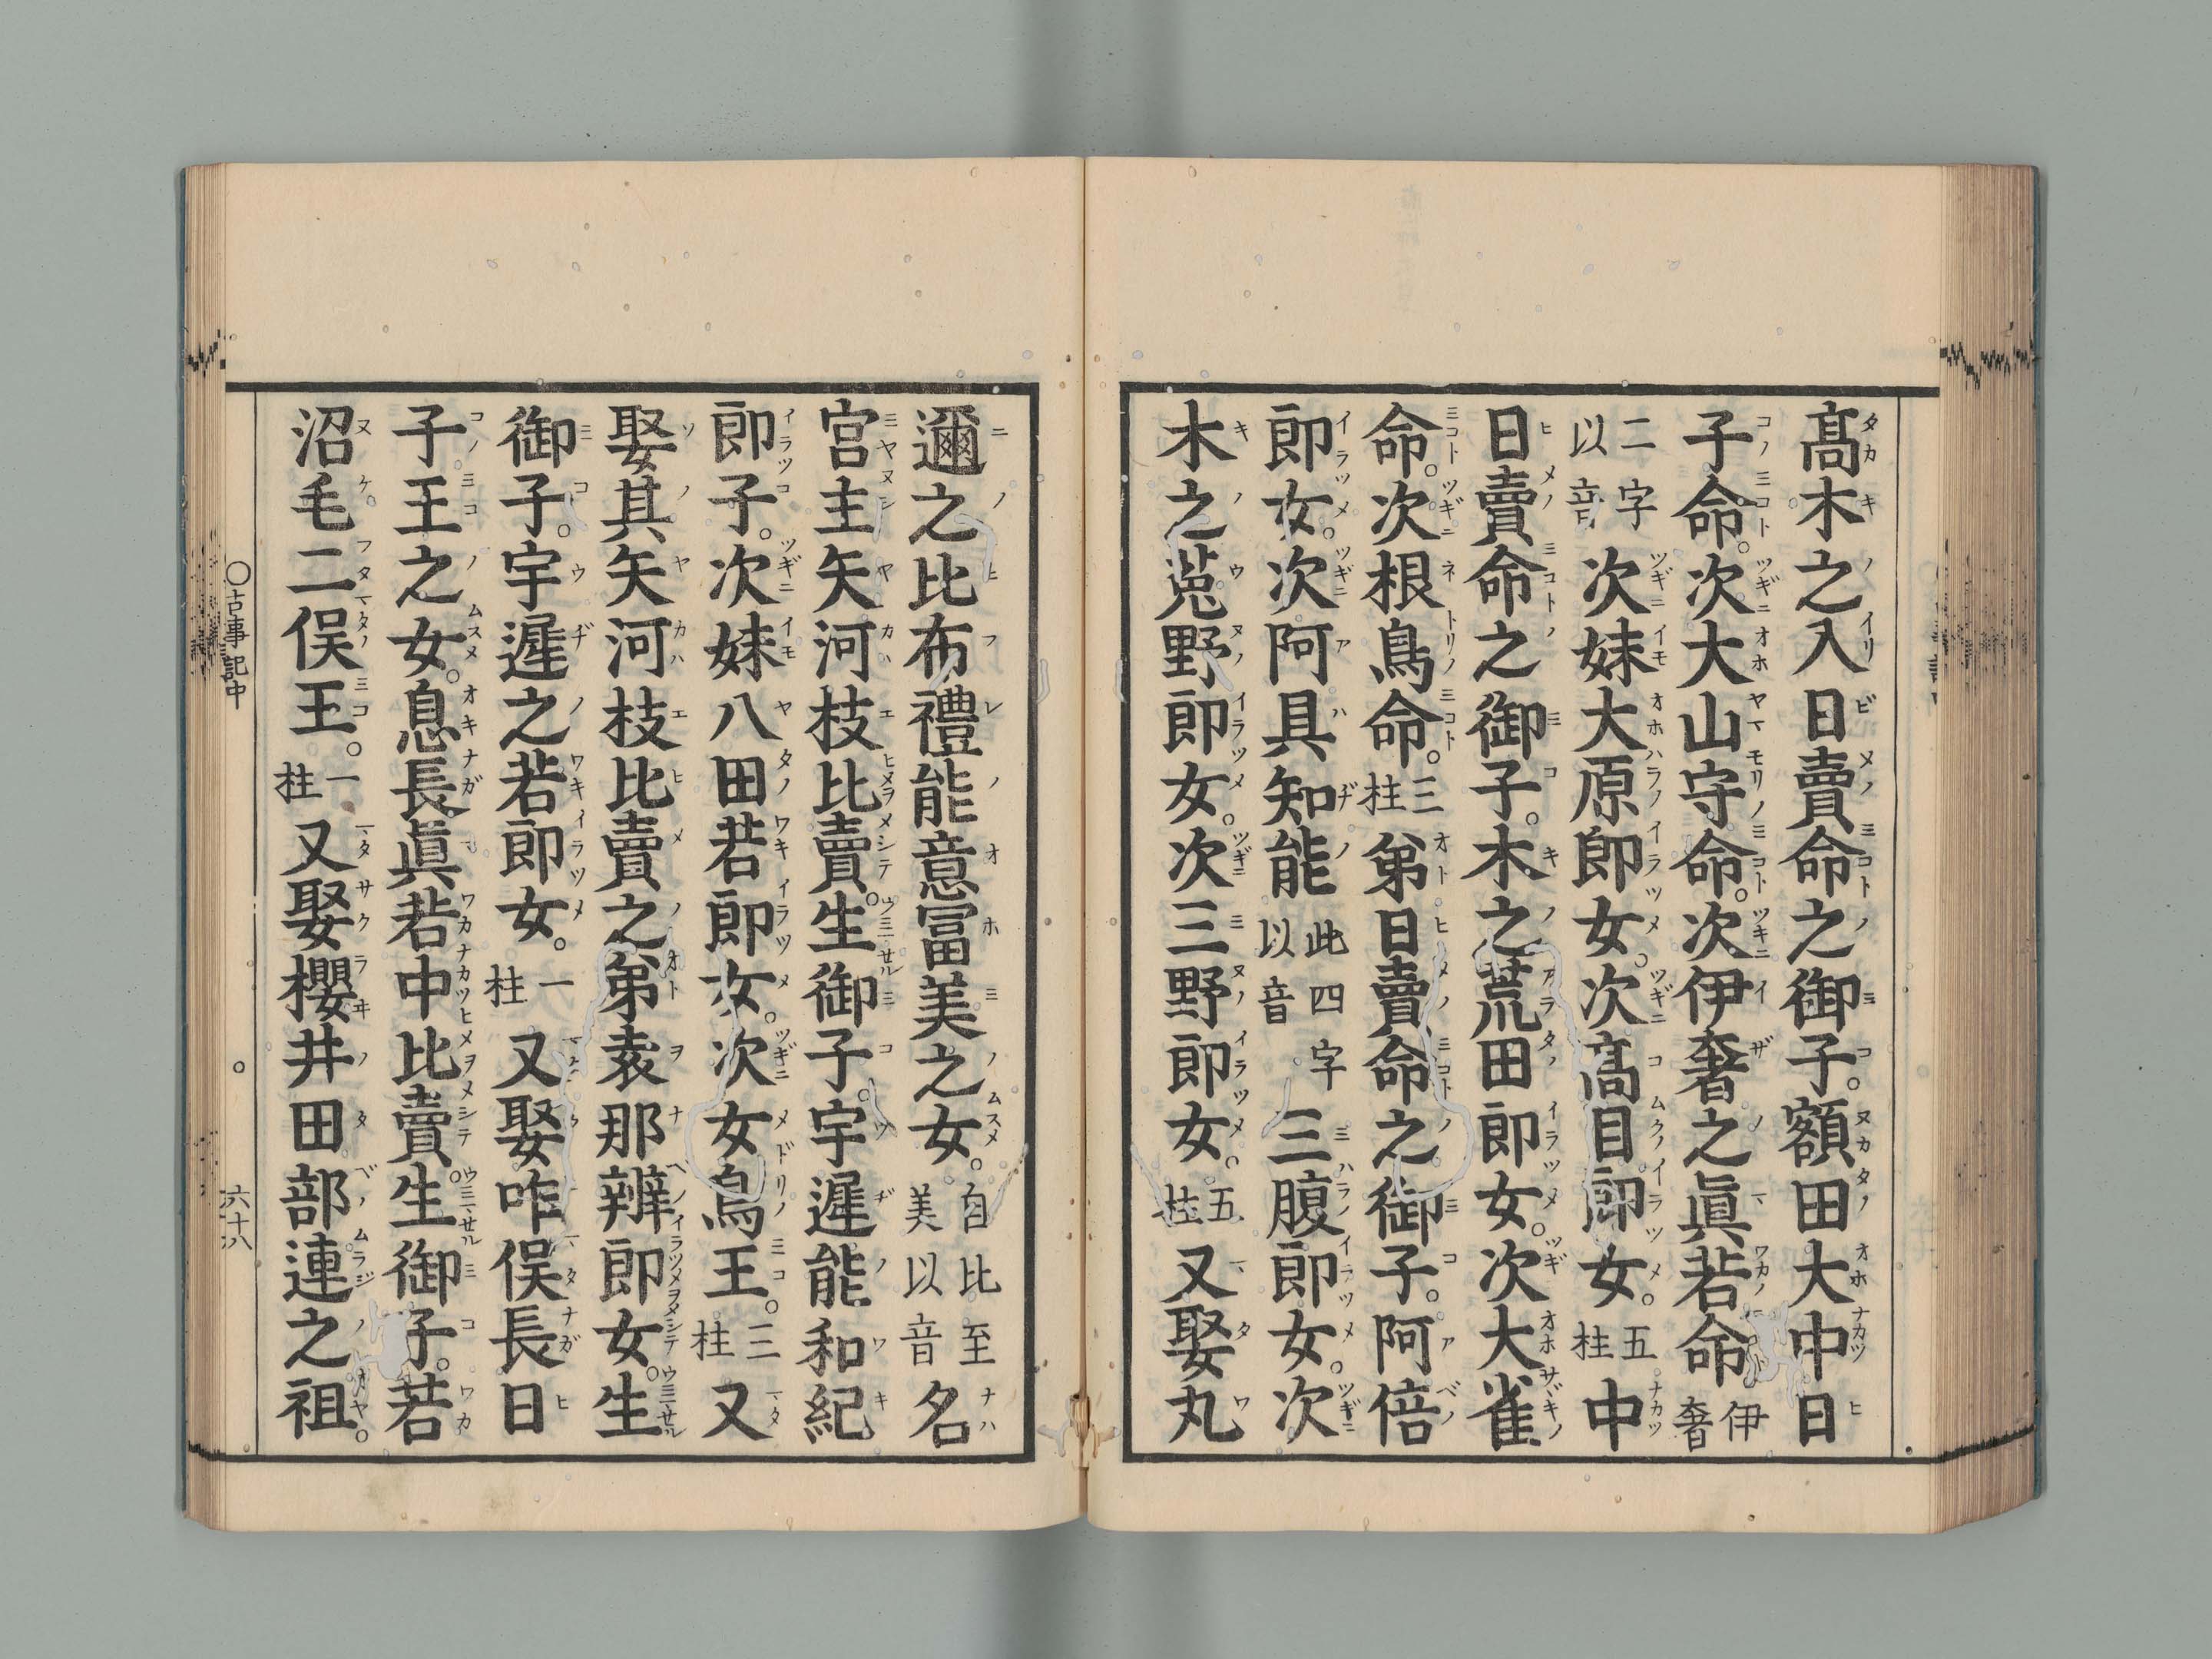 髙木之入日賣命之御子。額田大中日
子命。次大山守命。次伊奢之眞若命伊奢
二字以音次妹大原郎女。次髙目郎女。五柱中
日賣命之御子。木之荒田郎女。次大雀
命。次根鳥命。三柱弟日賣命之御子。阿倍
郎女。次阿具知能此四字以音三腹郎女。次
木之菟野郎女。次三野郎女。五柱又娶丸
邇之比布禮能意富美之女。自比至美以音名
宮主矢河枝比賣。生御子。宇遲能和紀
郎子。次妹八田若郎女。次女鳥王。三柱又
娶其矢河枝比賣之弟袁那辨郎女。生
御子。宇遲之若郎女。一柱又娶咋俣長日
子王之女。息長眞若中比賣。生御子。若
沼毛二俣王。一柱又娶櫻井田部連之祖。
〇古事記中 六十八